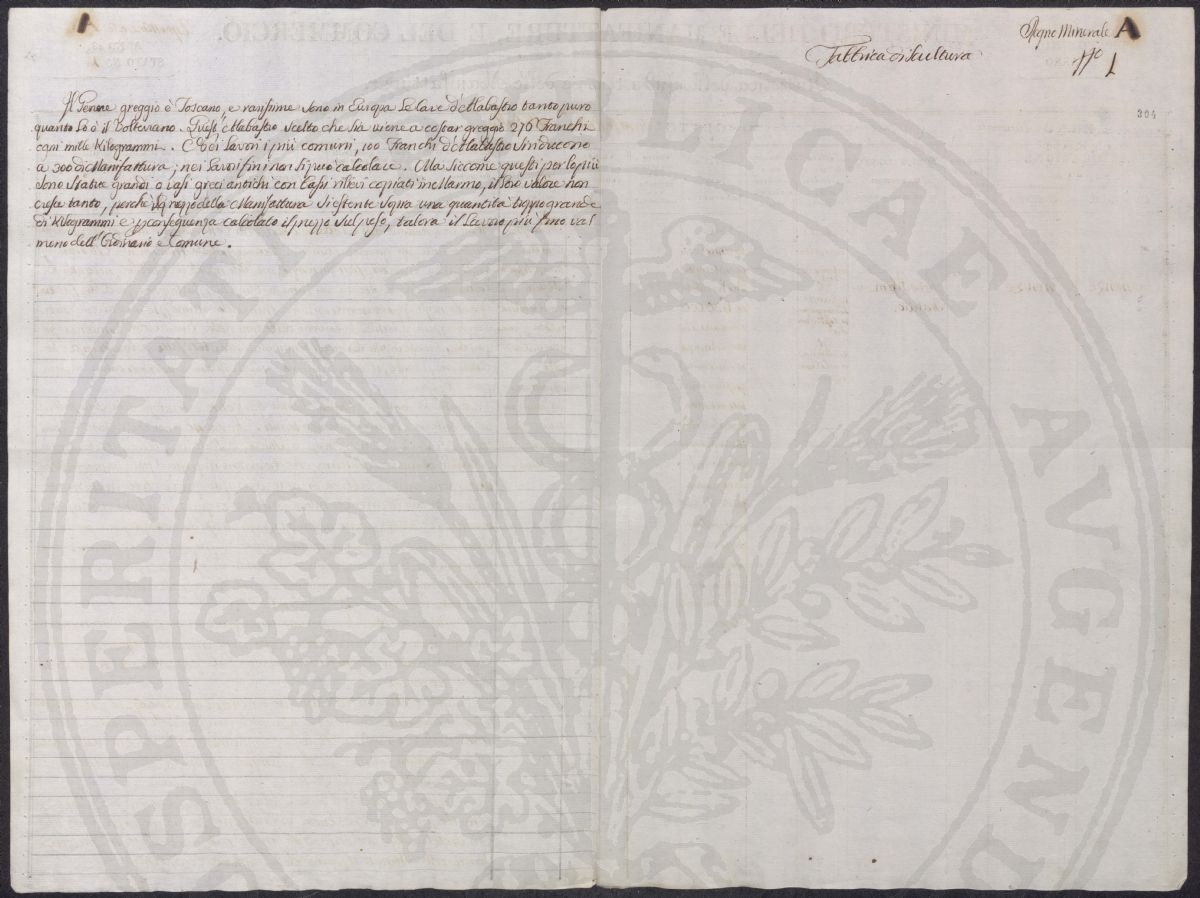 Il Genere greggio è Toscano, e rarissime sono in Europa le cave d'Alabastro tanto puro
quanto lo è il Volterrano. Quest'Alabastro scelto che sia viene a costar greggio 276 Franchi
ogni mille Kilogrammi. E poi lavori i più comuni, 100 Franchi d'Alabastro si riducono
a 300 di Manifattura; nei lavori fini non si può calcolare. Ma siccome questi per lo più
sono Statue grandi o vasi greci antichi con bassi rilievi copiati in Marmo, il loro valore non
cresce tanto, perchè il prezzo della Manifattura si estente sopra una quantità troppo grande
di Kilogrammi e p conseguenza calcolato il prezzo sul peso, talora il Lavoro più fino val
meno dell'Ordinario e Comune.
Fabbrica di Scultura
Regno Minerale A
No 1
304
PERITATI
PUBLICAE AUGEND